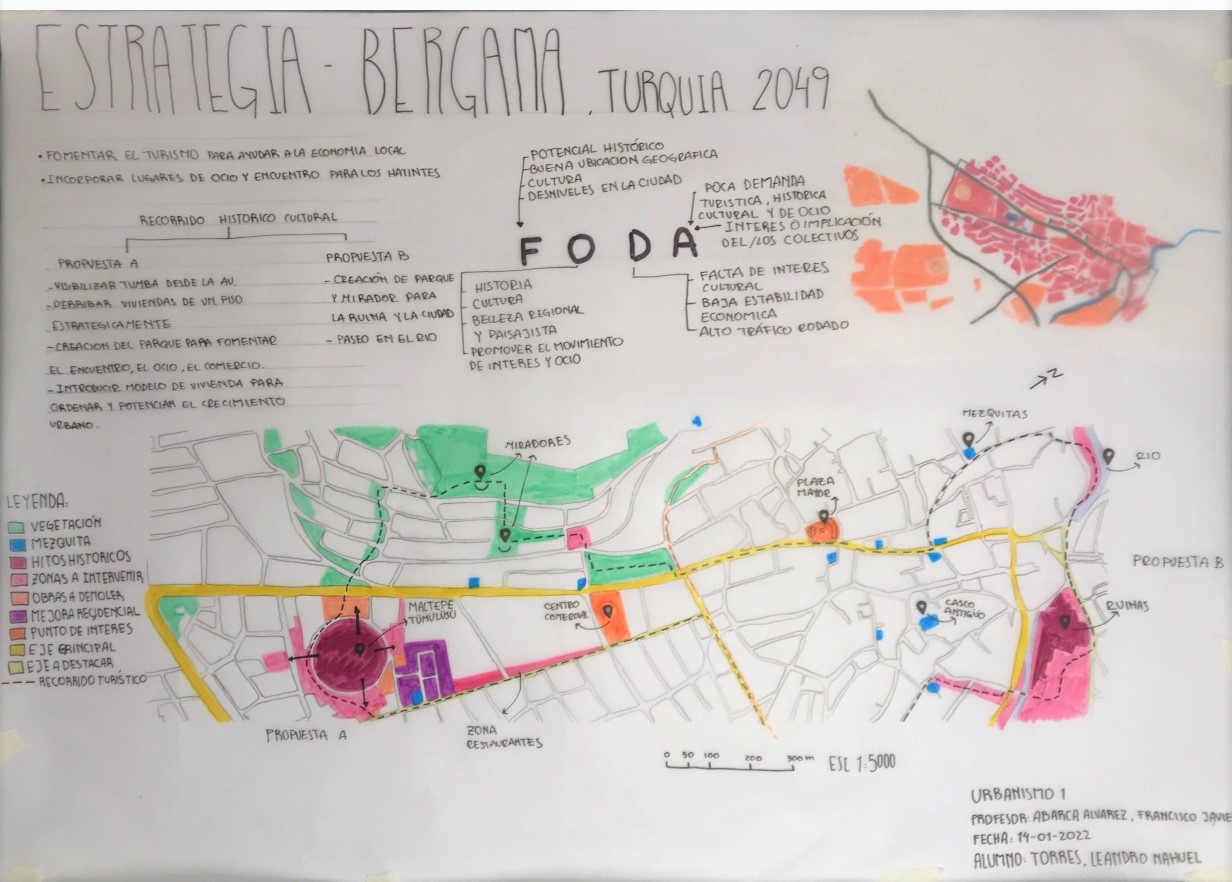 ESTRATEGIA - BERGAMA, TURQUIA 2049
• FOMENTAR EL TURISMO PARA AYUDAR A LA ECONOMIA LOCAL
• INCORPORAR LUGARES DE OCIO Y ENCUENTRO PARA LOS HATINTES
RECORRIDO HISTORICO CULTURAL
PROPUESTA A
- VISIBILIZAR TUMBA DESDE LA AV.
- DERRIBAR VIVIENDAS DE UN PISO
ESTRATEGICAMENTE
- CREACION DEL PARQUE PARA FOMENTAR
EL ENCUENTRO, EL OCIO, EL COMERCIO.
- INTRODUCIR MODELO DE VIVIENDA PARA
ORDENAR Y POTENCIAR EL CRECIMIENTO
URBANO.
PROPUESTA B
- CREACIÓN DE PARQUE
Y MIRADOR PARA
LA RUINA Y LA CIUDAD
- PASEO EN EL RIO
POTENCIAL HISTÓRICO
BUENA UBICACION GEOGRAFICA
CULTURA
DESNIVELES EN LA CIUDAD
POCA DEMANDA
TURISTICA, HISTORICA
CULTURAL Y DE OCIO
INTERES O IMPLICACIÓN
DEL/LOS COLECTIVOS
F O D A
HISTORIA
CULTURA
BELLEZA REGIONAL
Y PAISAJISTA
PROMOVER EL MOVIMIENTO
DE INTERES Y OCIO
FACTA DE INTERES
CULTURAL
BAJA ESTABILIDAD
ECONOMICA
ALTO TRÁFICO RODADO
N
MIRADORES
MEZQUITAS
RIO
PLAZA
MAYOR
PROPUESTA B
LEYENDA:
VEGETACIÓN
MEZQUITA
HITOS HISTORICOS
ZONAS A INTERVENIR
OBRAS A DEMOLER
MEJORA RECIDENCIAL
PUNTO DE INTERES
EJE PRINCIPAL
EJE A DESTACAR
RECORRIDO TURISTICO
MALTEPE
TÜMULÜSÜ
CENTRO
COMERCIAL
CASCO
ANTIGUO
RUINAS
PROPUESTA A
ZONA
RESTAURANTES
0 50 100 200 300 m
ESC 1:5000
URBANISMO 1
PROFESOR: ABARCA ALVAREZ, FRANCISCO JAVIE
FECHA: 14-01-2022
ALUMNO: TORRES, LEANDRO NAHUEL